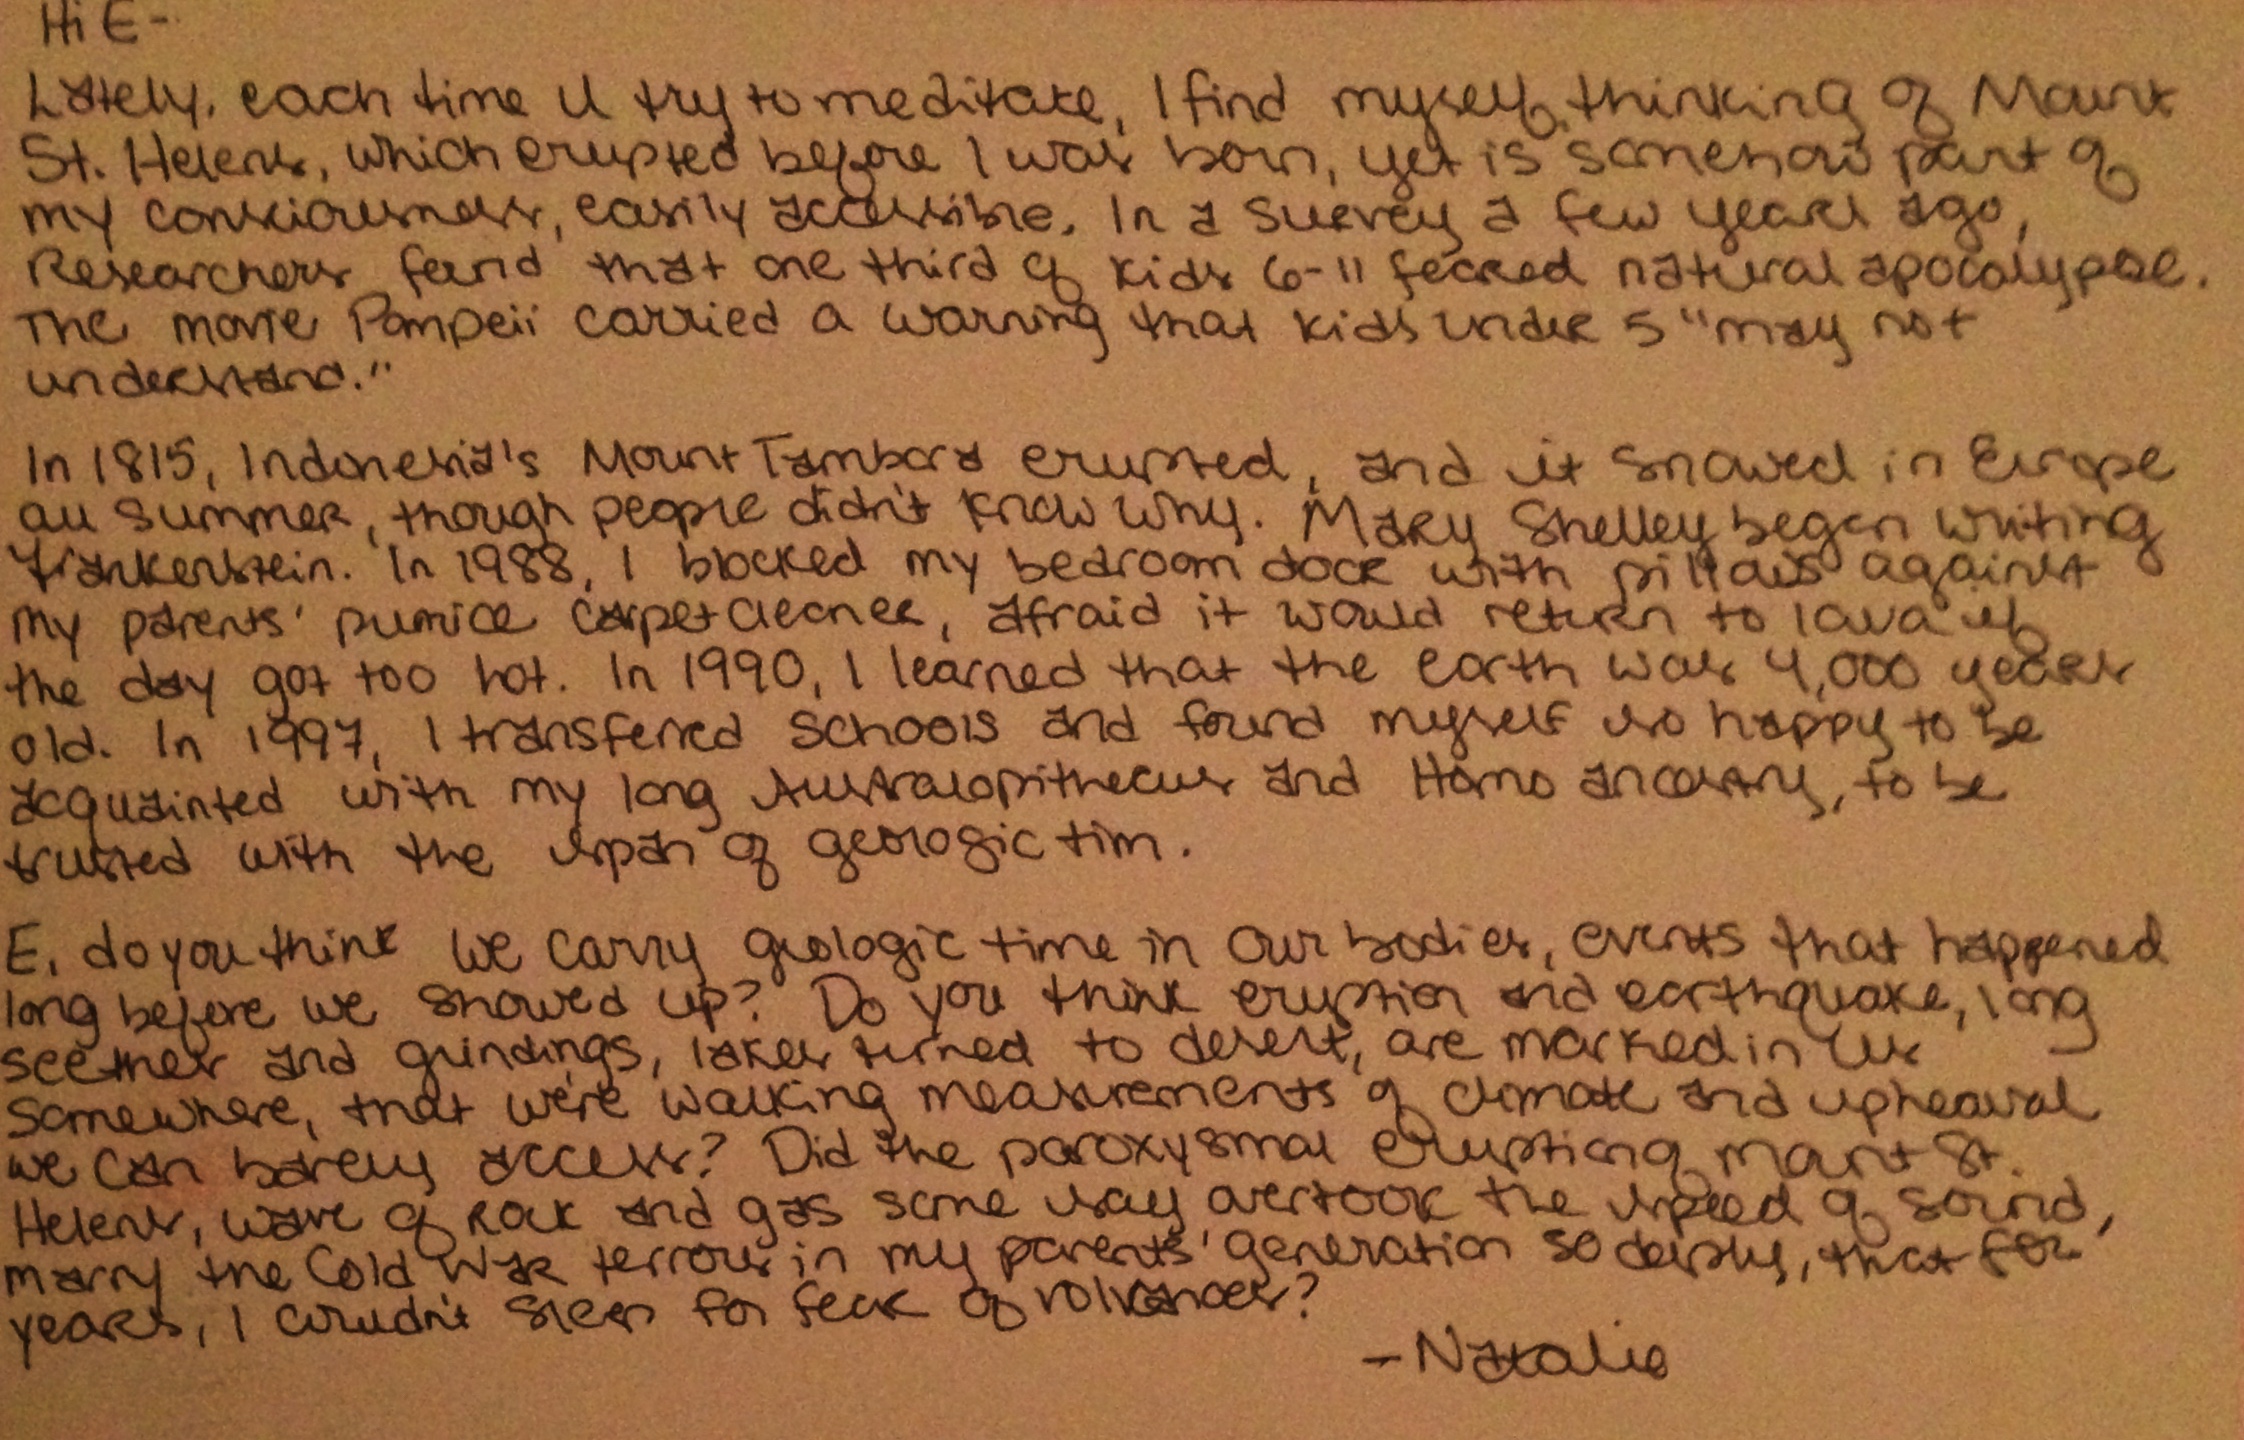 Hi E-
Lately, each time I try to meditate, I find myself thinking of Mount
St. Helens, which erupted before I was born, yet is somehow part of
my consciousness, easily accessible. In a survey a few years ago,
Researchers found that one third of kids 6-11 feared natural apocalypse.
The movie Pompeii carried a warning that kids under 5 "may not
understand."
In 1815, Indonesia's Mount Tambora erupted, and it snowed in Europe
all summer, though people didn't know why. Mary Shelley began writing
Frankenstein. In 1988, I blocked my bedroom door with pillows against
my parents' pumice carpet cleaner, afraid it would return to lava if
the day got too hot. In 1990, I learned that the earth was 4,000 years
old. In 1997, I transferred schools and found myself so happy to be
acquainted with my long Australopithecus and Homo ancestry, to be
trusted with the span of geologic tim.
E, do you think we carry geologic time in our bodies, events that happened
long before we showed up? Do you think eruption and earthquake, long
seethes and grindings, lakes turned to desert, are marked in us
somewhere, that we're walking measurements of climate and upheaval
we can barely access? Did the paroxysmal erupting Mount St.
Helens, wave of rock and gas some say overtook the speed of sound,
marry the Cold War terrors in my parents' generation so deeply, that for
years, I couldn't sleep for fear of volcanoes?
-Natalie